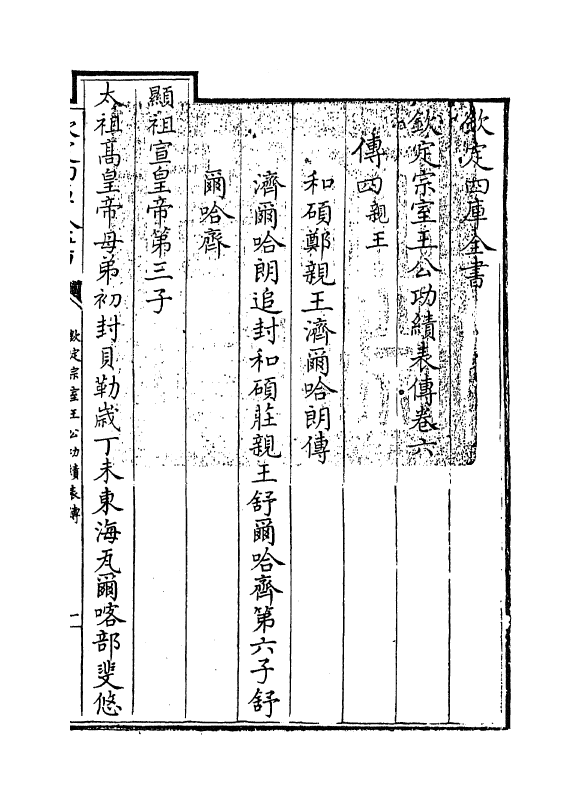 欽定四庫全書
欽定宗室王公功績表傳卷六
傳四親王
和碩鄭親王濟爾哈朗傳
濟爾哈朗追封和碩莊親王舒爾哈齊第六子舒
爾哈齊
顯祖宣皇帝第三子
太祖高皇帝母弟初封貝勒歲丁未東海瓦爾喀部斐悠
欽定宗室王公功績表傳
一